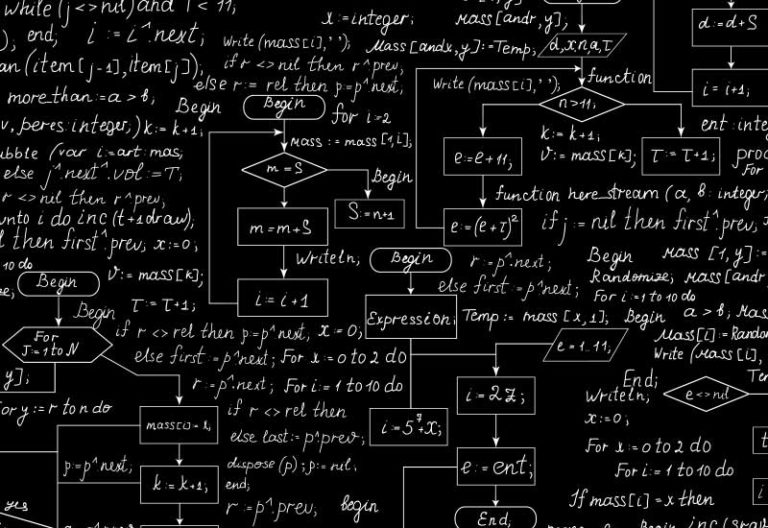 while (j <> nil) and I < 11;
end; i := i^.next;
(item[j-1], item[j]);
more_than := a > b;
v, beres: integer;) k := k+1;
(var i:=art: mas;
else j^.next^.vol := T;
r <> nil then r^prev,
i do inc (t+1 draw);
then first^.prev; x:=0;
10 do
Begin
v := mass[k];
Begin T := T+1;
For
J:=1 to N
y];
for y := r to n do
yes
x := integer;
mass [andr, y];
write (mass[i], ' ');
Mass [andx, y] := Temp;
d, x, n, a, τ
if r <> nil then r^prev,
else r := rel then p=p^next,
Write (mass[i], ' ');
function
Begin
Begin
for i=2
mass := mass [1,i];
m = S
Begin
m = m+S
S := n+1
i = i+1
writeln;
n>11,
e := e+11,
k := k+1;
v := mass[k];
τ := τ+1;
d := d+S
i = i+1,
ent : inte
proc
For
function here_stream (a, b: integer;
e := (e+τ)²
if j := nil then first^.prev,
Begin
r := p^.next;
else first := p^.next;
Begin mass [1, y] :=
Randomize; mass [andr
For i := 1 to 10 do
Expression;
Temp := mass [x,1]; Begin a > b;
if r <> rel then p=p^next, x := 0;
else first := p^next; For x := 0 to 2 do
r := p^.next; For i = 1 to 10 do
e = 1..11;
mass[i] := Random
Write (mass[i],
End;
Writeln;
e <> nil
x := 0;
i = 5⁷+x;
e := ent;
End;
For x := 0 to 2 do
For i := 1 to 10 do
If mass[i] = x then
mass[i] = 1,
if r <> rel then
else last := p^prev;
p := p^next;
k := k+1;
dispose (p); p := nil,
end;
r := p^.prev; begin
Begin